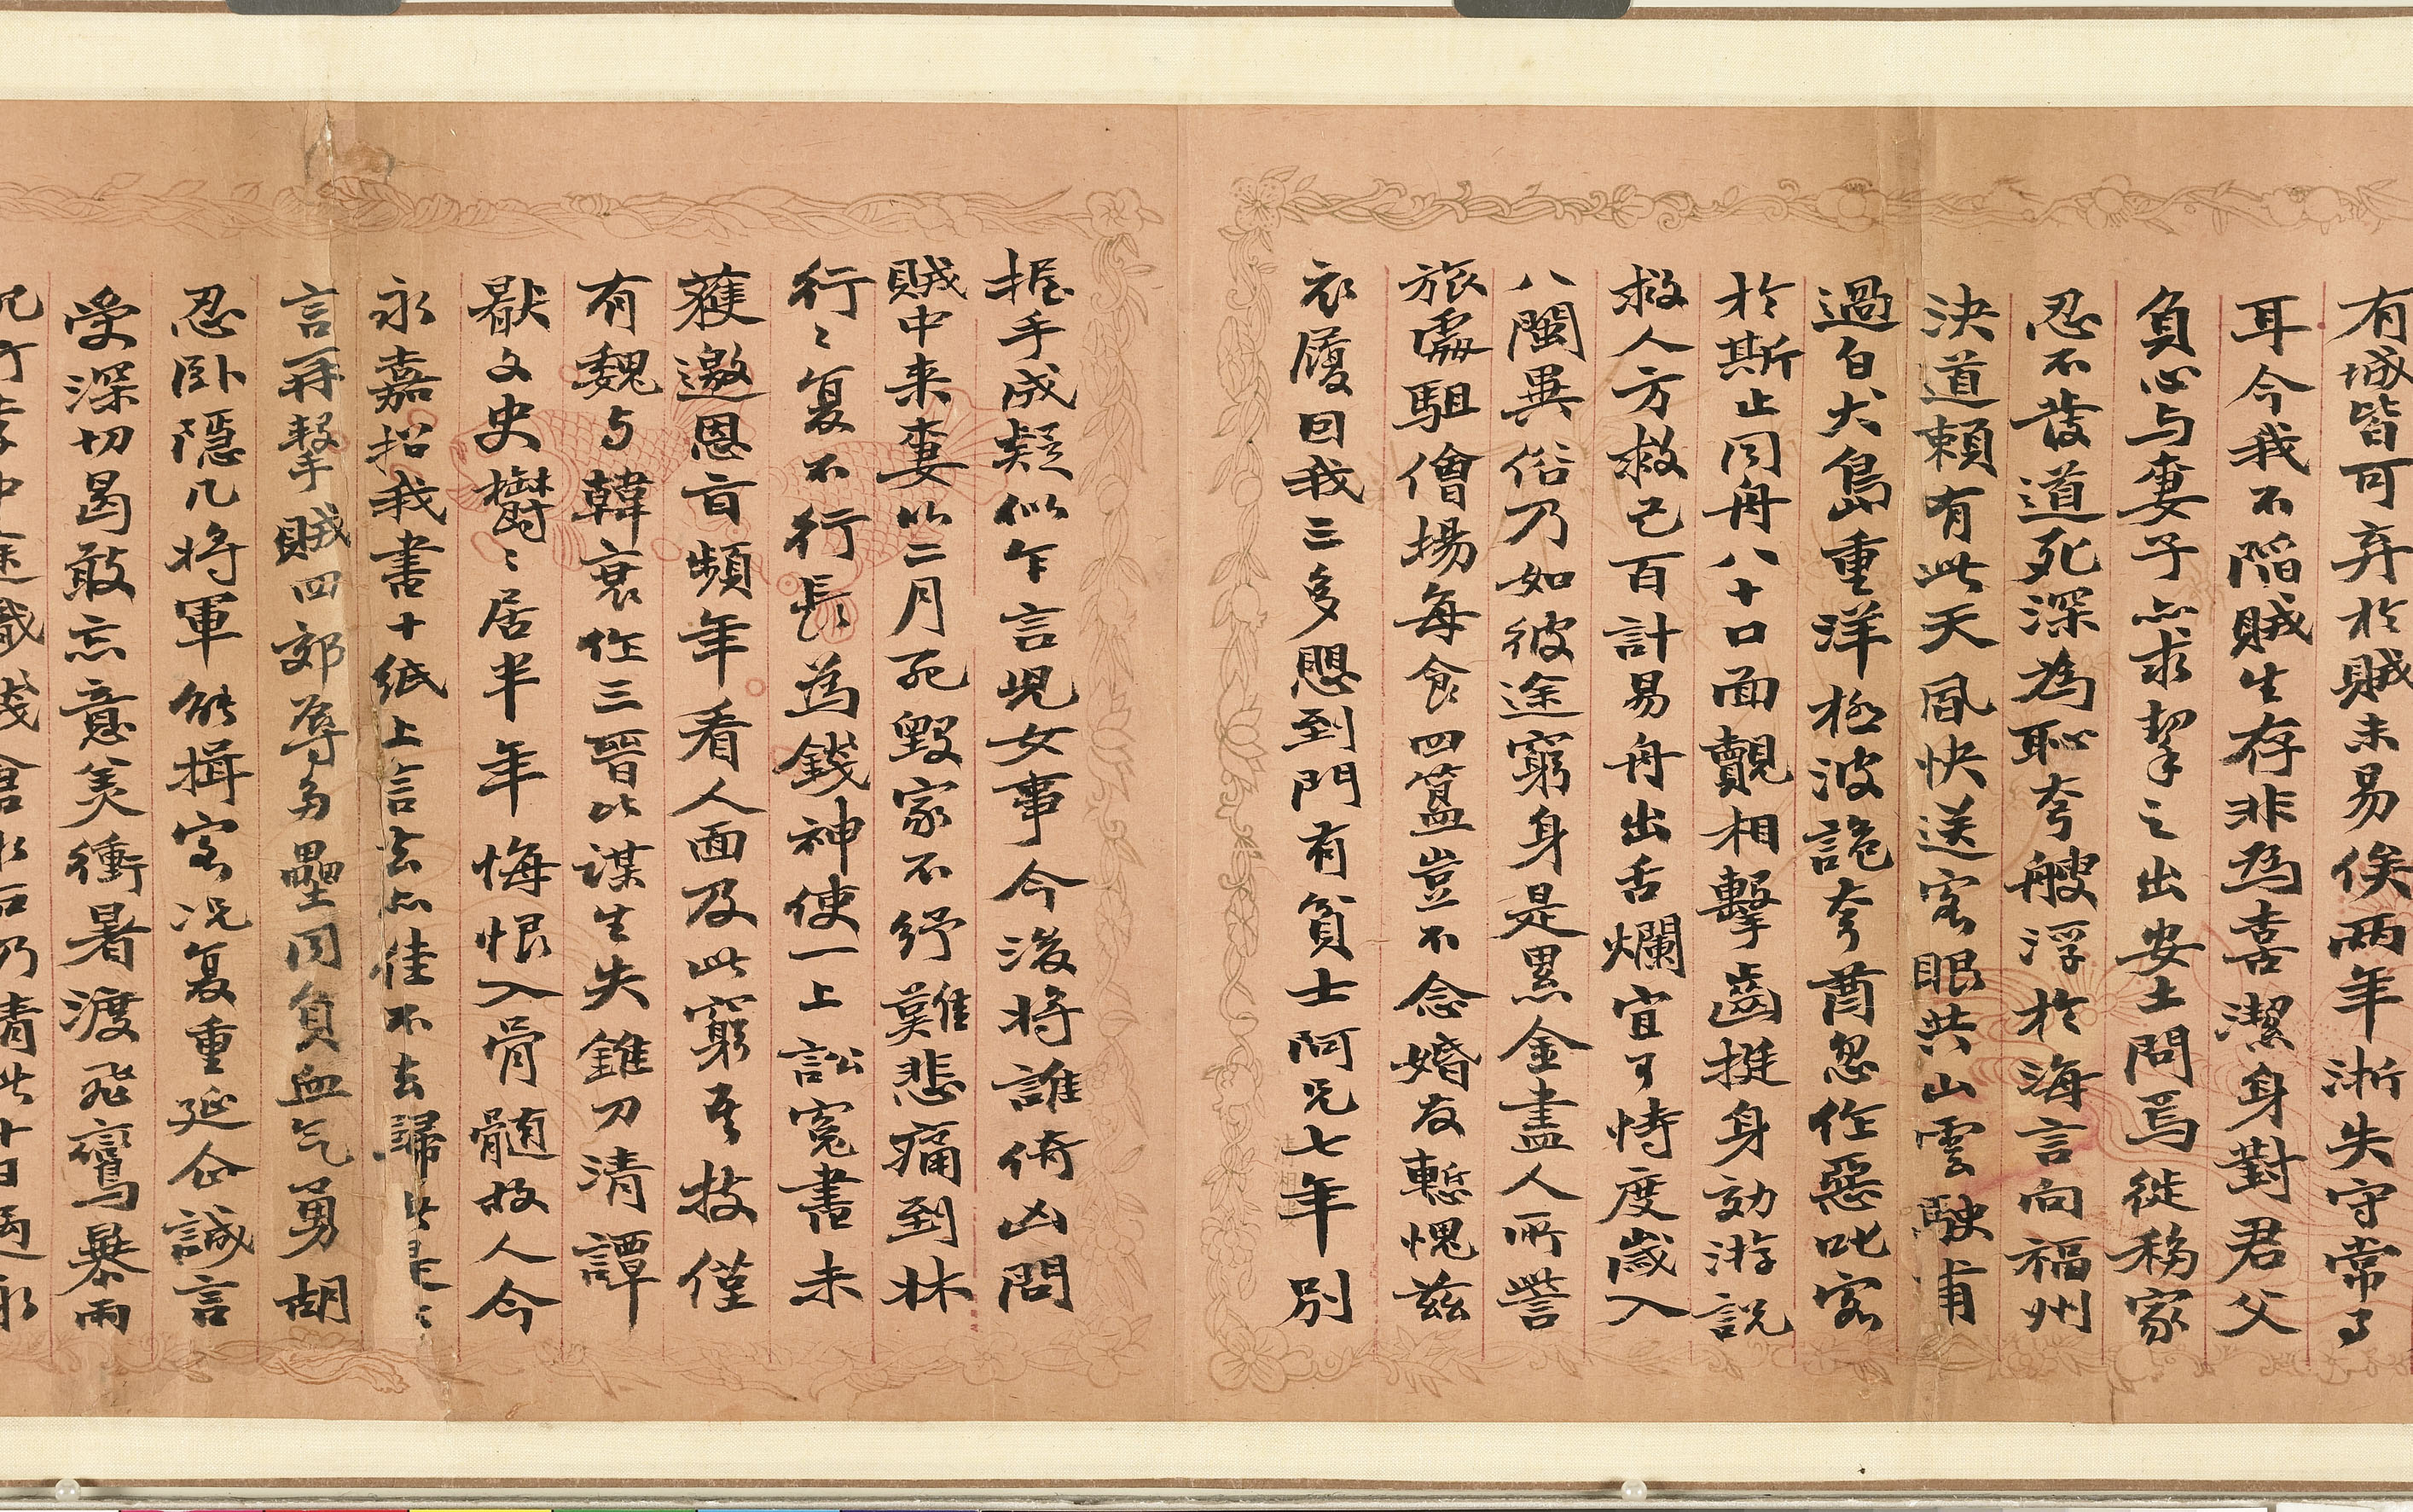 有城皆可弃於賊未易俟兩年淅失守常了
耳今我不陷賊生存非為喜潔身對君父
負心与妻子亦求挈之出安土問焉徙移家
忍不發道死深為恥夸艘浮於海言向福州
決道賴有此天風快送客眼共山雲駛甫
過白犬島重洋極波詭夸酋忽作惡叱客
於斯止同舟八十口面覿相擊齒挺身効游説
救人方救己百計易舟出舌爛宜可恃度歲入
八閩異俗乃如彼途窮身是累金盡人所訾
旅處駔儈場每食四簋豈不念婚友慙愧茲
衣履回我三多愳到門有貧士阿兄七年別
握手成疑似乍言児女事今後將誰倚凶問
賊中来妻以二月死毀家不紓難悲痛到牀
行〻复不行長為錢神使一上訟寃書未
蒦邀恩旨頻年看人面及此窮吾技僅
有魏与韓哀作三晉比謀生失錐刀清譚
猒文史欝〻居半年悔恨入骨髄故人今
永嘉招我書十紙上言去亦佳不去歸
言再擊賊四郊辱多壘同負血气勇胡
忍卧隱几將軍能揖客况复重延企誠言
受深切曷敢忘意美衝暑渡飛鸞暴雨